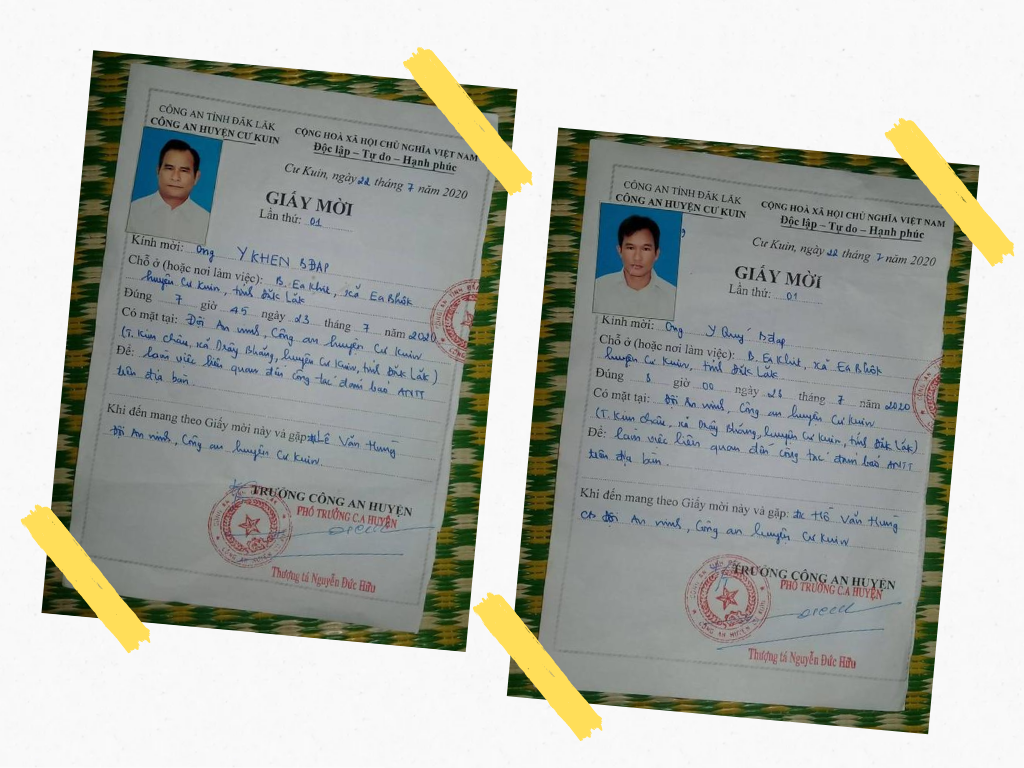 CÔNG AN TỈNH ĐĂK LĂK
CÔNG AN HUYỆN CƯ KUIN
CỘNG HOÀ XÃ HỘI CHỦ NGHĨA VIỆT NAM
Độc lập – Tự do – Hạnh phúc
Cư Kuin, ngày 22 tháng 7 năm 2020
GIẤY MỜI
Lần thứ: 01
Kính mời: Ông Y KHEN BĐAP
Chỗ ở (hoặc nơi làm việc): B. Ea Khit, xã Ea Bhôk
huyện Cư Kuin, tỉnh Đắk Lắk
Đúng 7 giờ 45 ngày 23 tháng 7 năm 2020
Có mặt tại: Đội An ninh, Công an huyện Cư Kuin
(T. Kim châu, xã Dray Bhăng, huyện Cư Kuin, tỉnh Đắk Lắk)
Để: làm việc liên quan đến công tác đảm bảo ANTT
trên địa bàn.
Khi đến mang theo Giấy mời này và gặp: Lê Văn Hưng
Đội An ninh, Công an huyện Cư Kuin.
TRƯỞNG CÔNG AN HUYỆN
PHÓ TRƯỞNG C.A HUYỆN
Thượng tá Nguyễn Đức Hữu
CÔNG AN TỈNH ĐĂK LĂK
CÔNG AN HUYỆN CƯ KUIN
CỘNG HOÀ XÃ HỘI CHỦ NGHĨA VIỆT NAM
Độc lập – Tự do – Hạnh phúc
Cư Kuin, ngày 22 tháng 7 năm 2020
GIẤY MỜI
Lần thứ: 01
Kính mời: Ông Y Quý Bđap
Chỗ ở (hoặc nơi làm việc): B. Ea Khit, xã Ea Bhôk
huyện Cư Kuin, tỉnh Đắk Lắk
Đúng 8 giờ 00 ngày 23 tháng 7 năm 2020
Có mặt tại: Đội An ninh, Công an huyện Cư Kuin
(T. Kim châu, xã Dray Bhăng, huyện Cư Kuin, tỉnh Đắk Lắk)
Để: làm việc liên quan đến công tác đảm bảo ANTT
trên địa bàn.
Khi đến mang theo Giấy mời này và gặp: đ/c Hồ Văn Hưng
CB đội An ninh, Công an huyện Cư Kuin
TRƯỞNG CÔNG AN HUYỆN
PHÓ TRƯỞNG C.A HUYỆN
Thượng tá Nguyễn Đức Hữu